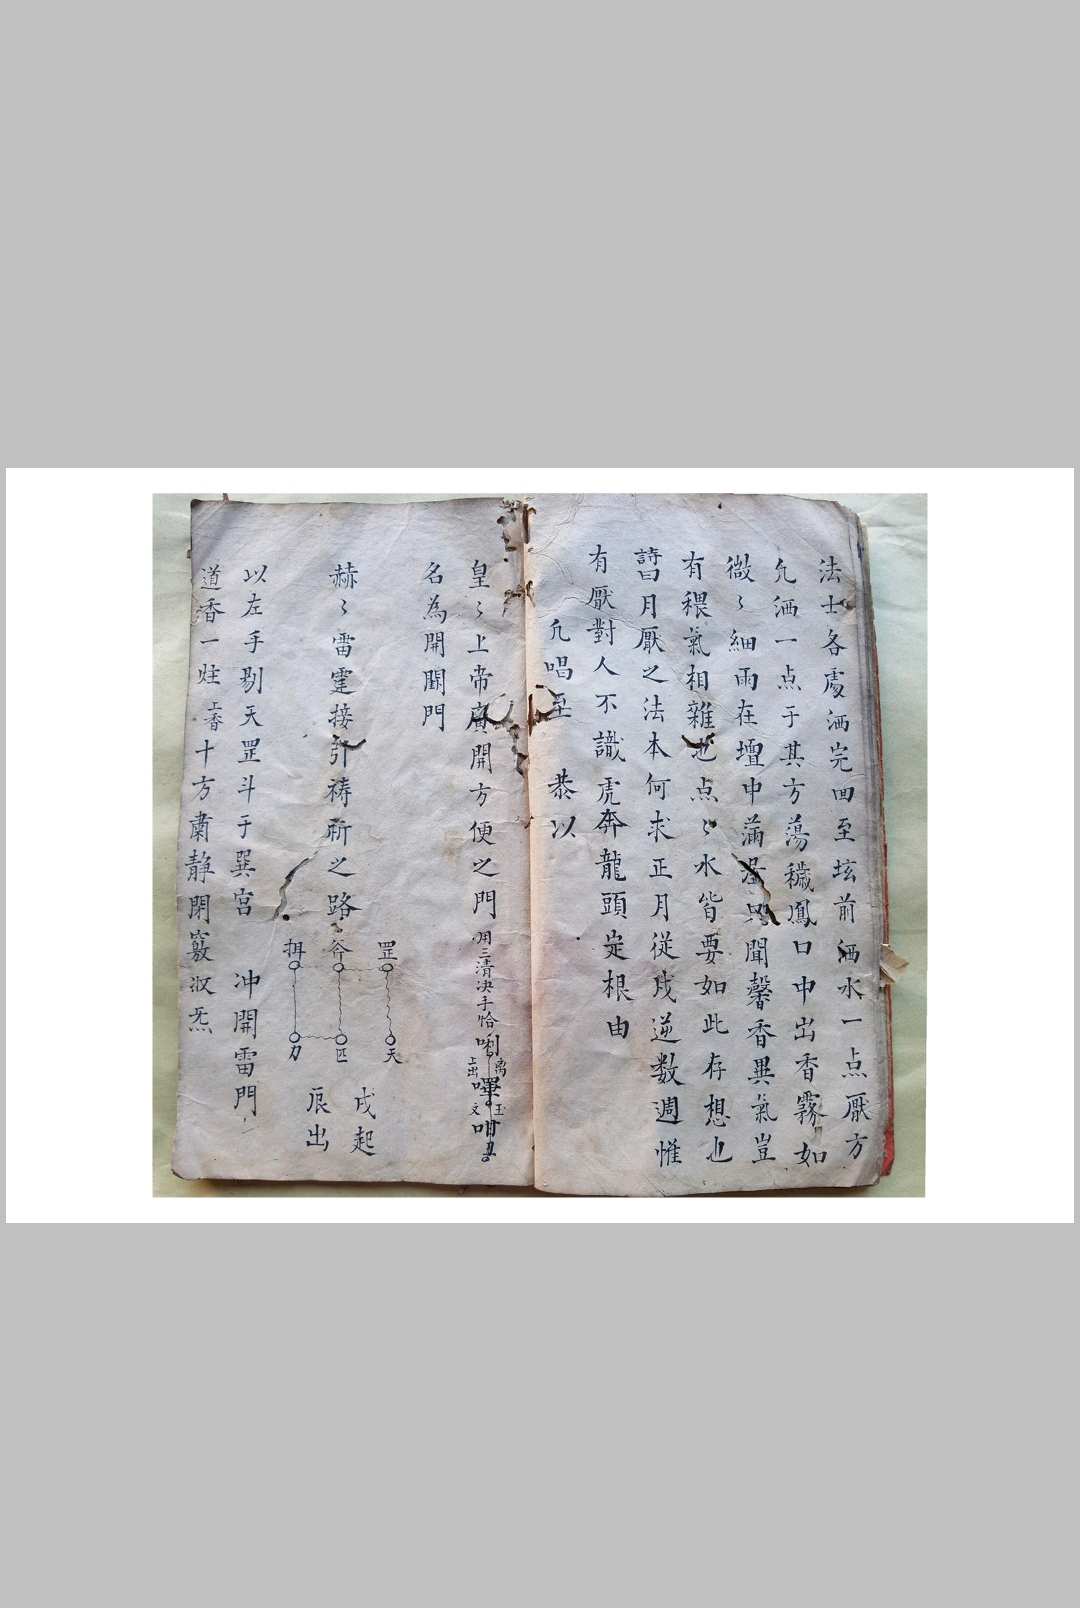 法士各處洒完回至垓前洒水一点厭方
凢洒一点于其方蕩穢鳳口中出香霧如
微〻細雨在壇中滿聞馨香異氣豈
有穢氣相雜也点〻水皆要如此存想也
詩曰月厭之法本何求正月從戌逆数週惟
有厭對人不識虎奔龍頭定根由
凢唱至 恭以
皇〻上帝廣開方便之門 用三清决手恰
唎 離
嗶 上出
玉文
名為開門
赫〻雷霆接引祷祈之路
罡 天
匹
力
戌起
辰出
以左手剔天罡斗于巽宮 冲開雷門
道香一炷 上香 十方肅靜閉竅汲炁